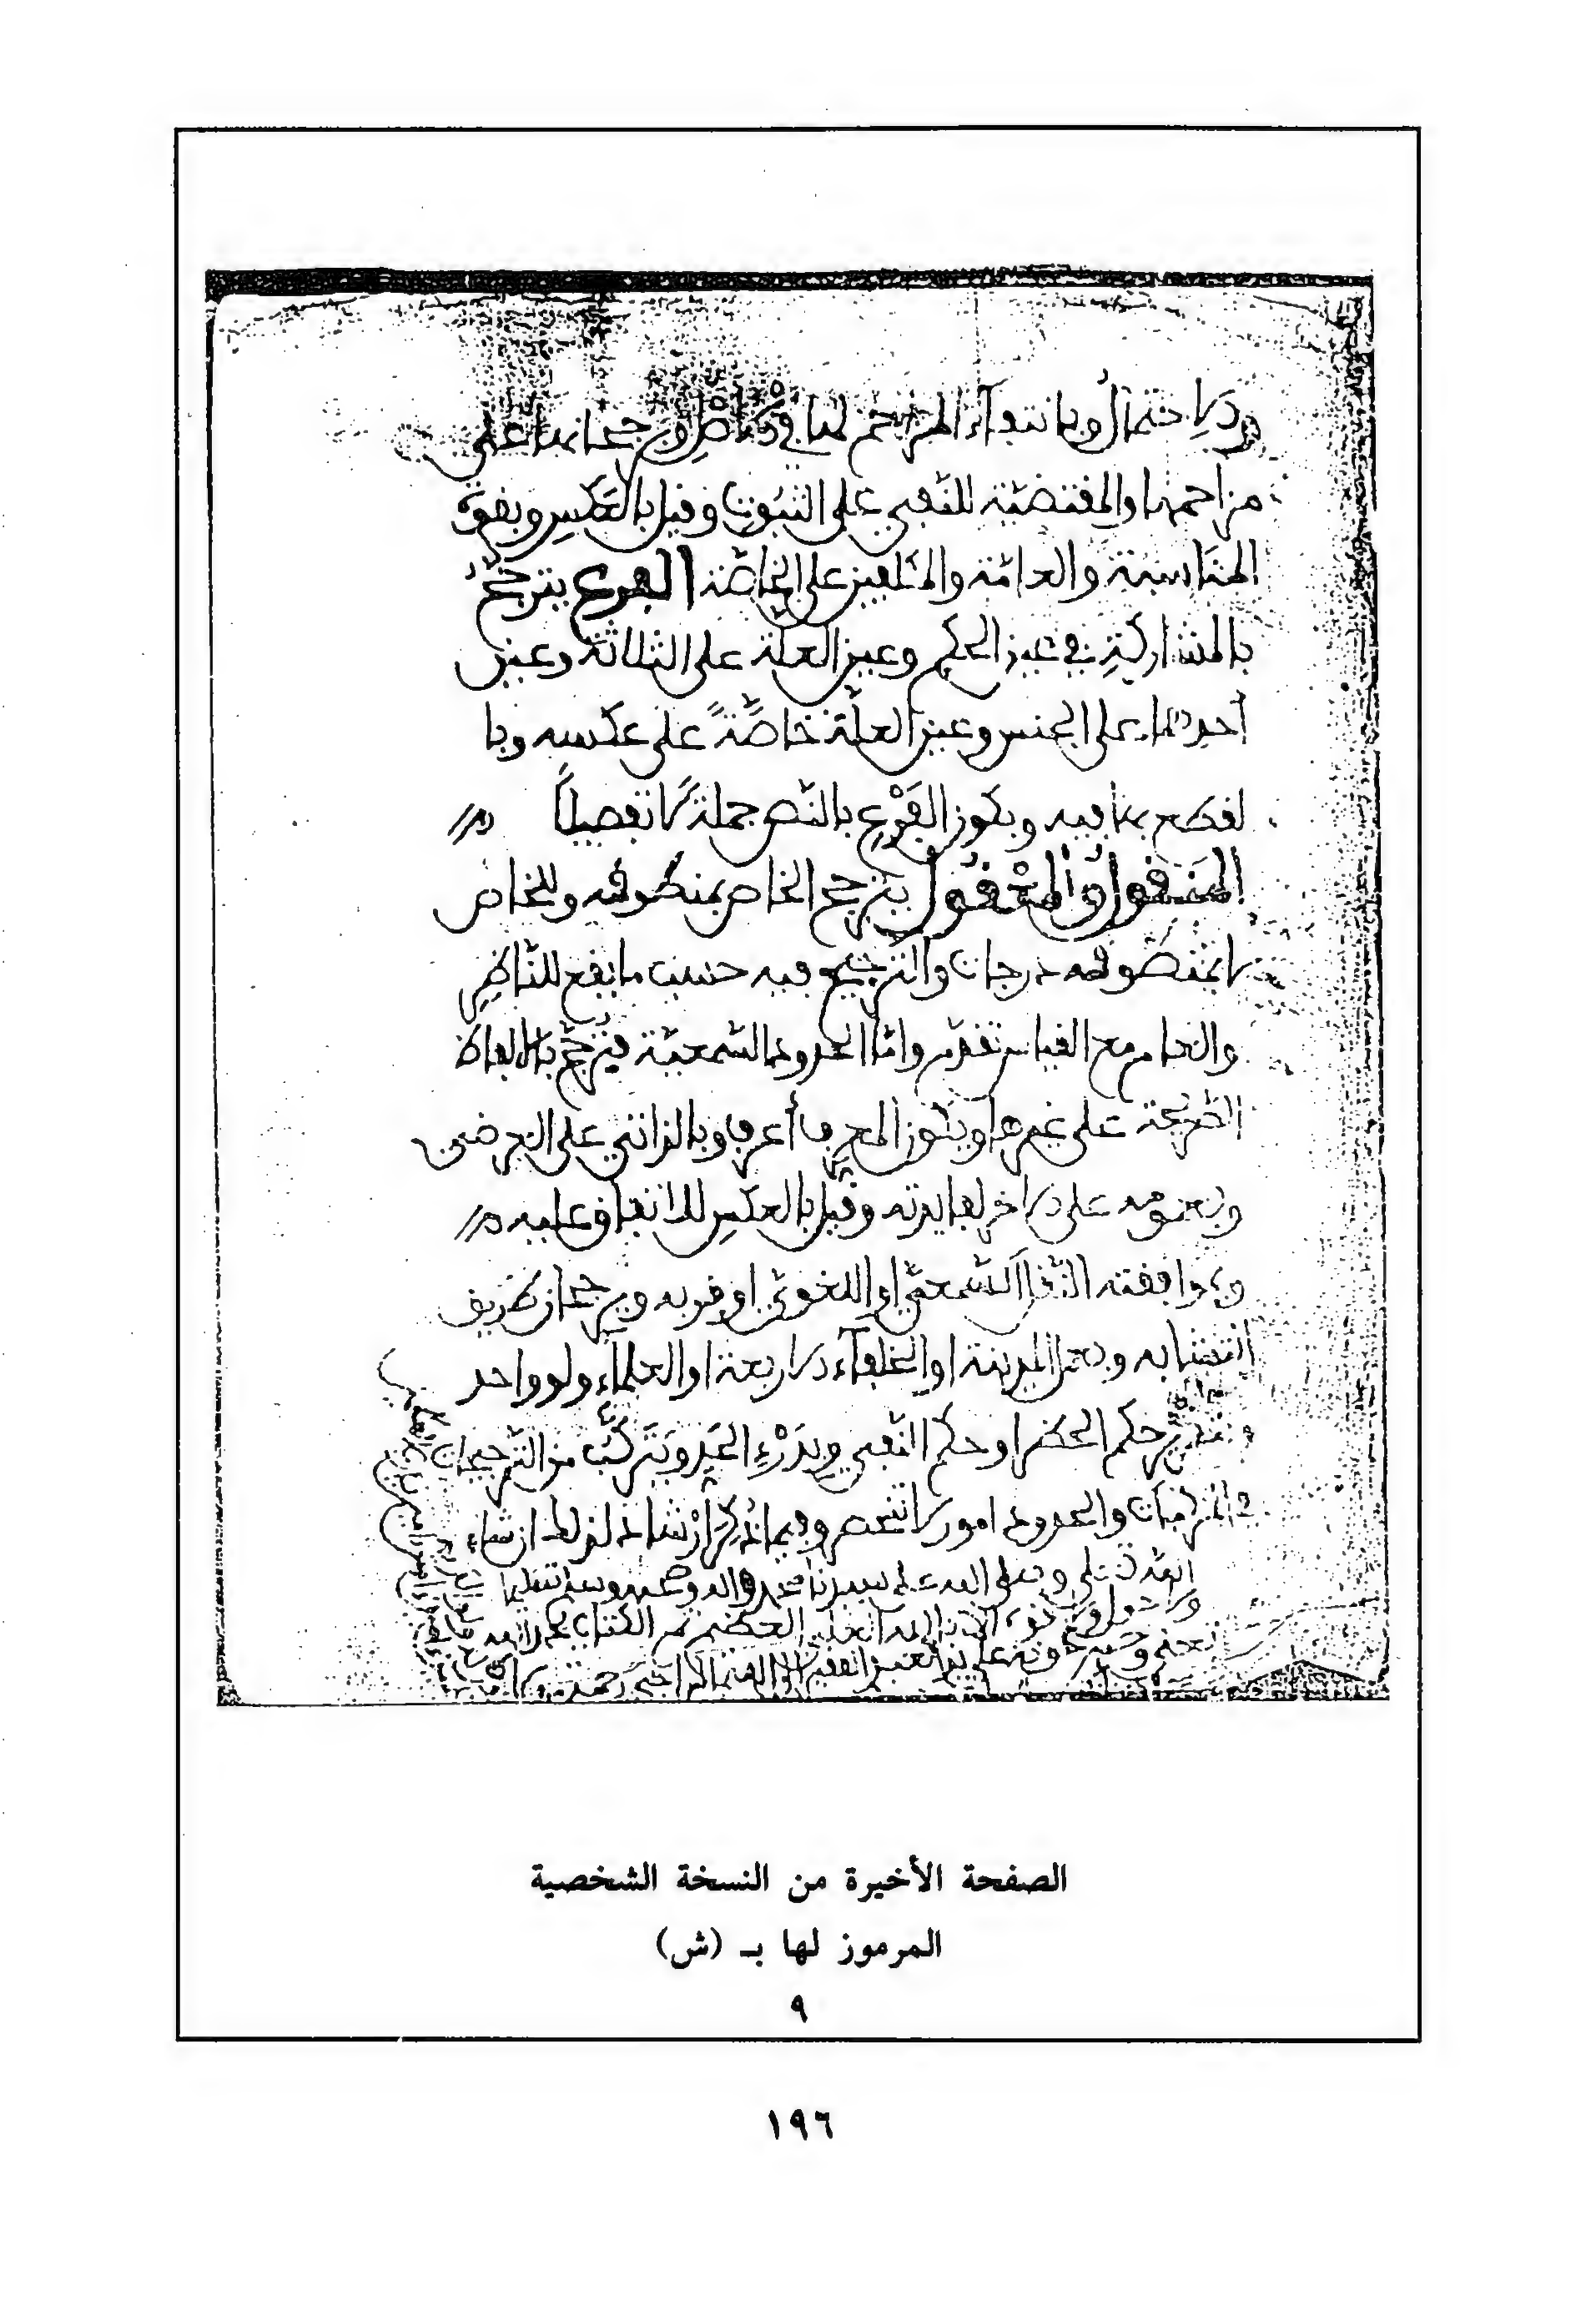 والاحتمال وبانتفاء المزاحم لها في الاصل ورجحانها على
مزاحمها والمقتضية للنفي على الثبوت وقيل بالعكس وبقوة
المناسبة والعامة في المكلفين على الخاصة الفرع يترجح
بالمشاركة في عين الحكم وعين العلة على الثلاثة وعين
أحدهما على الجنس وعين العلة خاصّةً على عكسه وبا
لقطع بها فيه وبكون الفَرْعِ بالنص جملة لا تفصيلاً
المنقول والمعْقُول يترجح الخاص بمنطوقه والخاص
لا بمنطوقه درجات والترجيح فيه حسب ما يقع للناظر
والعام مع القياس تقدم وامّا الحدود السّمعيّة فترجّح بالالفاظ
الصريحة على غيرها وبكون المعرف أعرف وبالذاتي على العرضي
وبعمومه على الاخر لفائدته وقيل بالعكس للاتفاق عليه
وبموافقته النقل السّمعي او اللغوي او قربه وبرجحان طريق
اكتسابه وبعمل المدينة او الخلفاء الاربعة او العلماء ولو واحد
وبتقرير حكم الحظر او حكم النفي وبدَرْءِ الحَدِ ويتركّب من الترجيحات
في المركبات والحدود امور لا تنحصر وفيما ذُكِرَ ارْشاد لذلك ان شاء
الله تعلى وصلى الله على سيدنا محمد واله وصحبه وسلم تسليما
ولا حول ولا قوة الا بالله العلي العظيم تم الكتاب بحمد الله
وحسن عونه على يد العبد الفقير الى الله الراجي رحمة
الصفحة الأخيرة من النسخة الشخصية
المرموز لها بـ (ش)
٩
١٩٦